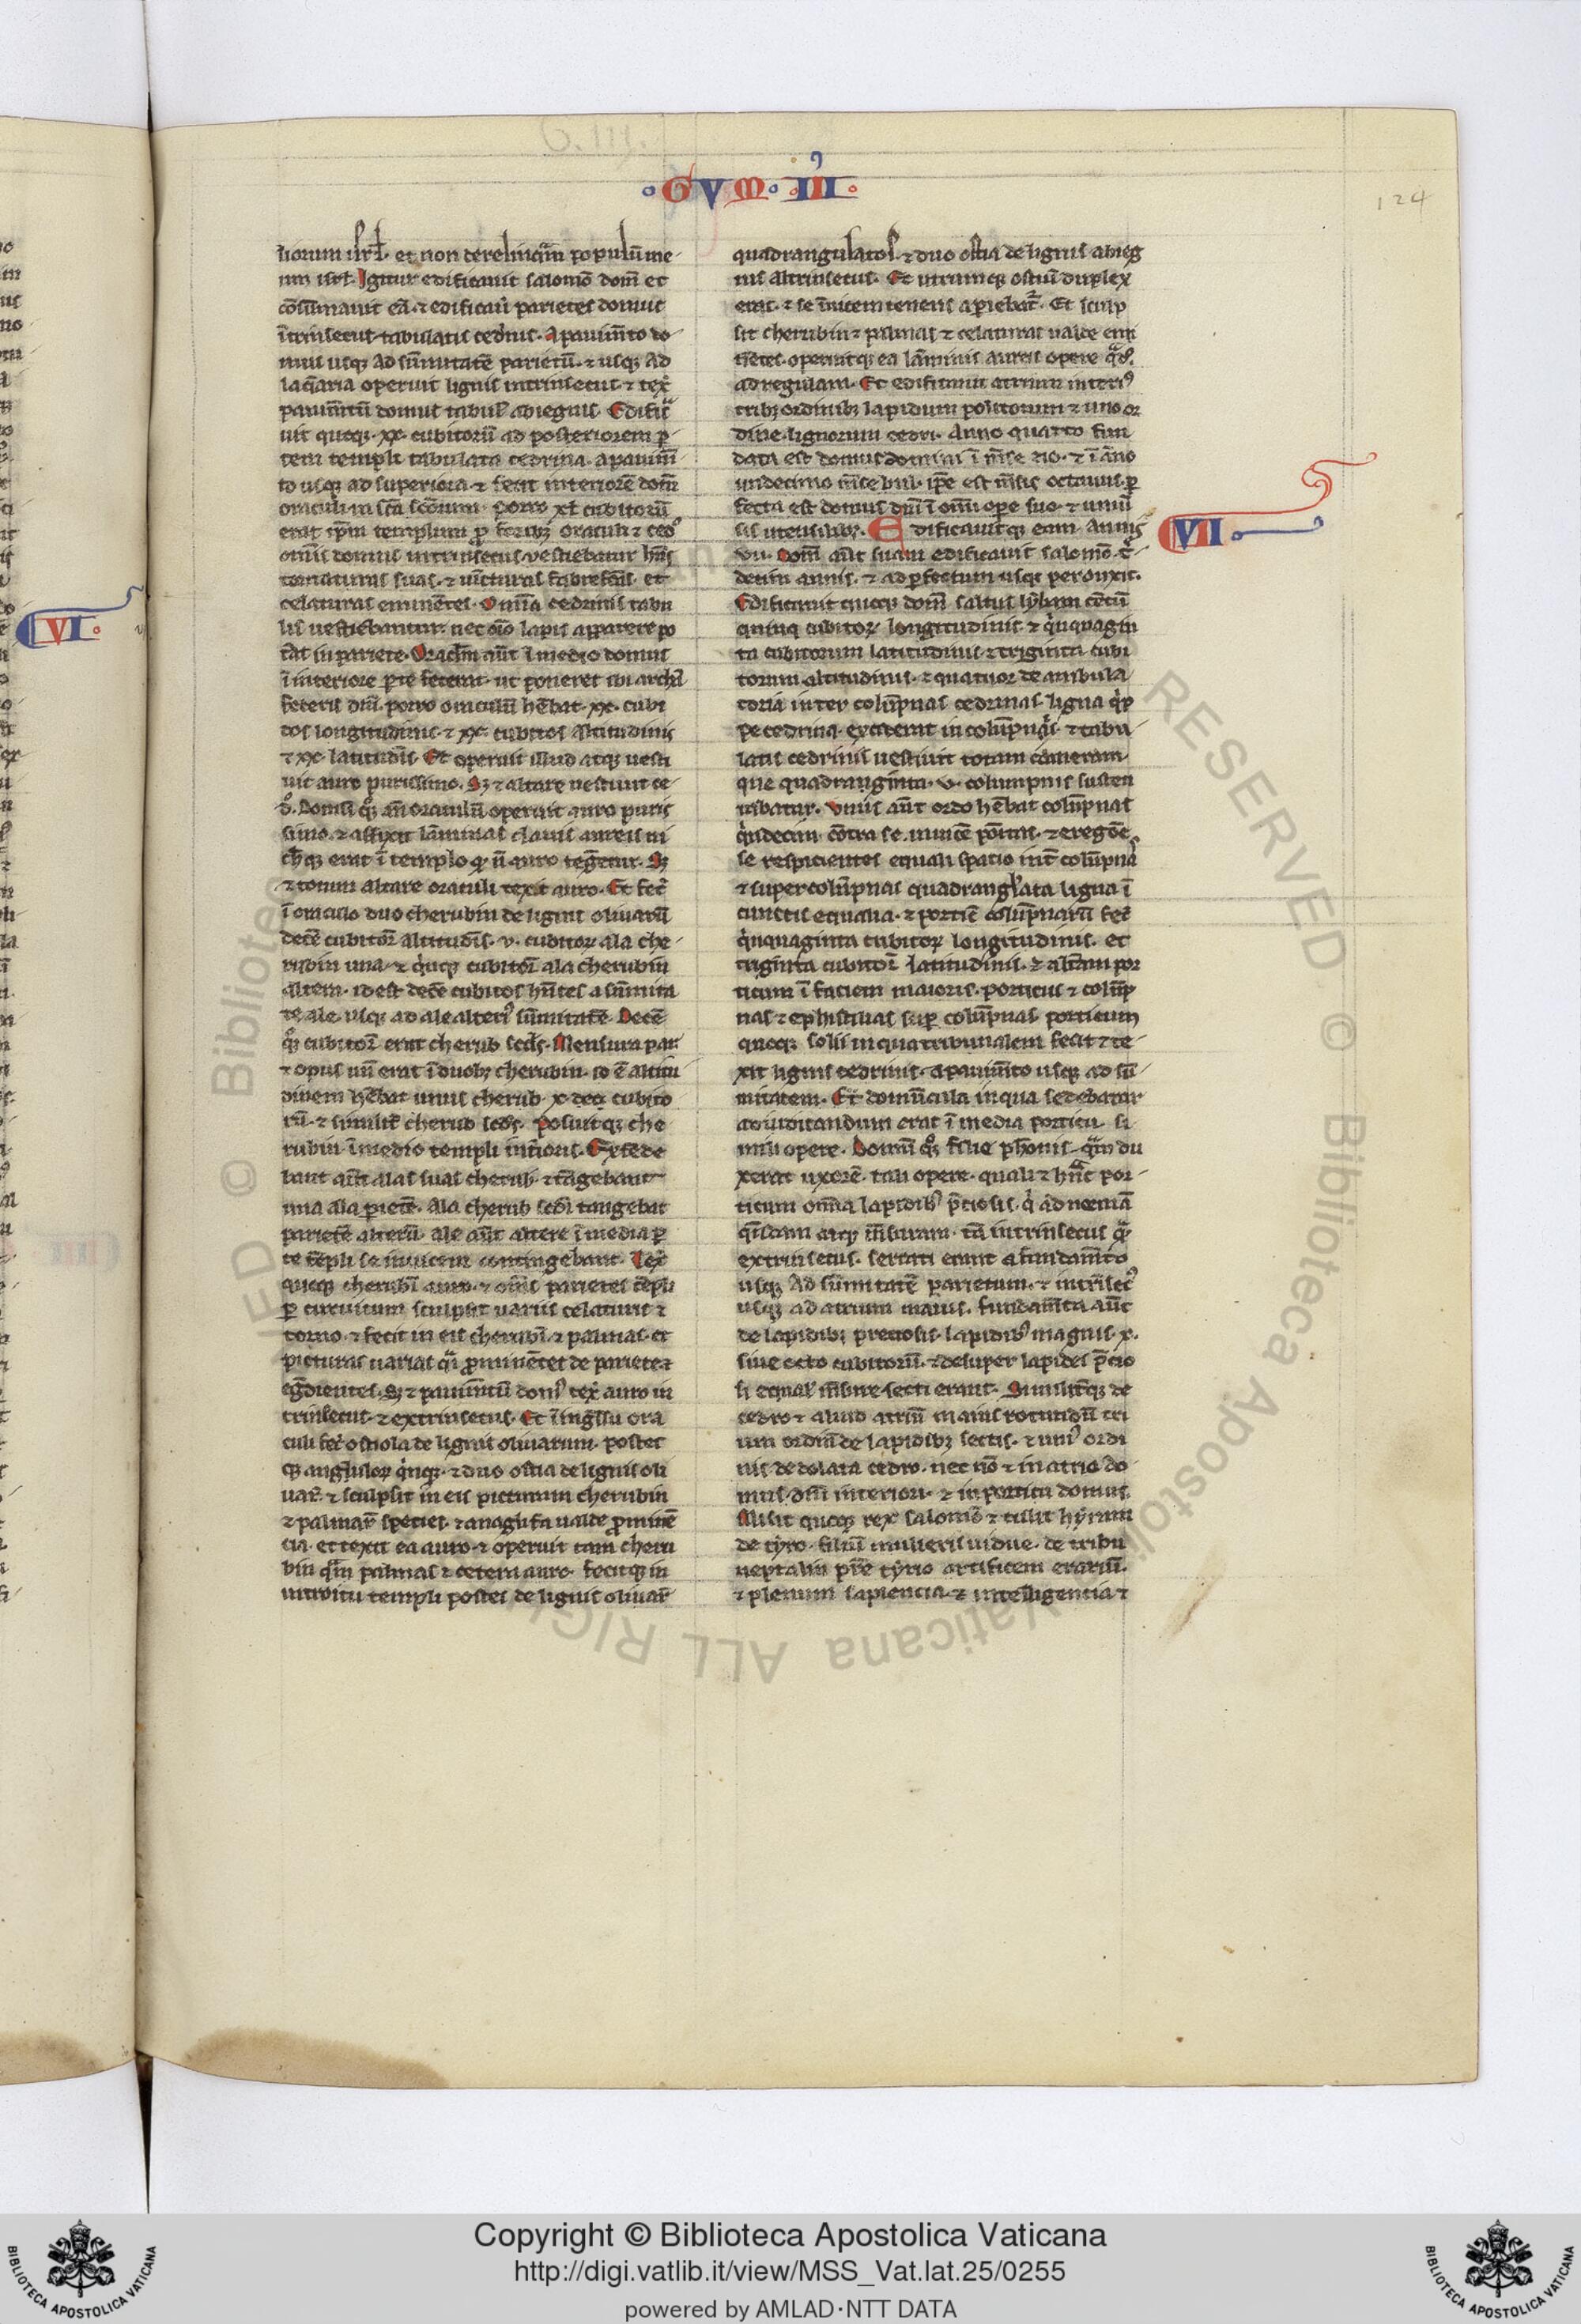 G. III.
GVM · III
124
liorum isrl̄. et non derelinquā populū me-
um isrl̄. Igitur edificauit salomō domū et
cōsummauit eā. ⁊ edificauit parietes domus
ītrinsecus tabulatis cedrinis. A pauimēto do-
mus usqȝ ad sūmitatē parietū. ⁊ usqȝ ad
laqaria operuit lignis intrinsecus ⁊ tex̄
pauimētū domus tabul' abiegnis. Edifica
uit quoqȝ xx. cubitorū ad posteriorem p̄-
tem templi tabulata cedrina. a pauim̄
to usqȝ ad superiora. ⁊ fecit interiorē domū
oraculi in sc̄a sc̄orum. Porro xl. cubitorū
erat ip̄m templum p̄ foribȝ oraculi ⁊ ced
omīs domus intrinsecus uestiebatur hn̄s
tornaturas suas. ⁊ iūcturas fabrefc̄as. et
celaturas eminētes. Omīa cedrinis tabu
lis uestiebantur. nec oīo lapis apparere po
t̄at in pariete. Oraclm̄ aūt ī medio domus
ī interiore pte fecerat. ut poneret ibi archā
federis dn̄i. porro oraculū hēbat. xx. cubi
tos longitudinis. ⁊ xx. cubitos altitudinis
⁊ xx. latitudīs. Et operuit illud atqȝ uesti
uit auro purissimo. Sȝ ⁊ altare uestiuit ce-
dō. Domū qȝ an̄ oraculū operuit auro puris
simo. ⁊ affixit lāminas clauis aureis ni
ch̄qȝ erat ī templo qd n̄ auro tegeretur. Sȝ
⁊ totum altare oraculi texit auro. Et fec̄
ī oraculo duo cherubin de lignis oliuarū
decē cubitoꝝ altitudīs. v. cubitoꝝ ala che-
rubin una. ⁊ qīnqȝ cubitoꝝ ala cherubin
altera. id est decē cubitos hn̄tes a sūmita
te ale usqȝ ad ale alteri' sūmitatē. Decē
qȝ cubitoꝝ erat cherub scd's. Mensura par
⁊ opus unū erat ī duobȝ cherubin. id ē altitu
dinem hēbat unus cherub. x. decē cubito
rū. ⁊ similit̄ cherub scd's. Posuitqȝ che
rubin ī medio templi int̄ioris. Extēde
bant aūt alas suas cherub. ⁊ tāgebant
una ala pietē. ala cherub scd'i tangebat
parietē alterū. ale aūt altere ī media p
te tēpli se inuicem contingebant. Tex̄
quoqȝ cherubī auro. ⁊ omīs parietes tēpli
p circuitum sculpsit uariis celaturis ⁊
torno. ⁊ fecit in eis cherubī. ⁊ palmas. et
picturas uarias qi pminētes de pariete ⁊
egdientes. Sȝ ⁊ pauimtū dom' tex̄ auro in
trinsecus. ⁊ extrinsecus. Et ī ingssu ora
culi fec̄ ostiola de lignis oliuarum. postes
qȝ anguloꝝ qīnqȝ. ⁊ duo ostia de lignis oli
uaꝝ. ⁊ sculpsit in eis picturam cherubin
⁊ palmaꝝ species. ⁊ anaglifa ualde pminē
cia. et texit ea auro. ⁊ operuit tam cheru
bin qm palmas ⁊ cetera auro. fecitqȝ in
introitu templi postes de lignis oliuaꝝ
quadrangulatos. ⁊ duo ostia de lignis abieg
nis altrinsecus. Et utrumqȝ ostiū duplex
erat. ⁊ se īuicem tenens apiebat̄. Et sculp
sit cherubin ⁊ palmas ⁊ celaturas ualde emi
nētes. operuitqȝ ea lāminis aureis opere qd'o
ad regulam. Et edificauit atrium interi'
tribȝ ordinibȝ lapidum politorum ⁊ uno or
dine lignorum cedri. Anno quarto fun
data est domus domini ī mīse zio. ⁊ ī āno
undecimo mēse bul. ip̄e est mēsis octauus. p
fecta est domus dn̄i ī omī ope suo. ⁊ uniuī
sis utensilibȝ. Edificauitqȝ eam annis
VI
vii. Domū aūt suam edificauit salomō t̄
decim annis. ⁊ ad pfectum usqȝ perduxit.
Edificauit quoqȝ domū saltus lybani cētū
quinqȝ cubitoꝝ longitudinis. ⁊ qīnquagin
ta cubitorum latitudinis. ⁊ triginta cubi
torum altitudinis. ⁊ quatuor deambula
toria inter colūpnas cedrinas. ligna qip
pe cedrina exciderat in colūpnas. ⁊ tabu
latis cedrinis uestiuit totam cameram.
que quadraginta. v. columpnis susten
tabatur. Unus aūt ordo hēbat colūpnas
qindecim. cōtra se inuicē poītas. ⁊ e regiōe
se respicientes equali spatio int̄ colūpnas
⁊ super colūpnas quadrangl'ata ligna ī
cunctis equalia. ⁊ porticū colūpnarū fec̄
qinquaginta cubitoꝝ longitudinis. et
triginta cubitoꝝ latitudinis. ⁊ altam por
ticum ī faciem maioris. porticus ⁊ colūp
nas ⁊ ephistilias sup colūpnas. porticum
quoqȝ solii in qua tribunalem fecit ⁊ te-
xit lignis cedrinis. a pauimēto usqȝ ad sū-
mitatem. Et domūcula in qua sedebatur
ad iudicandum erat ī media porticu. si-
mili opere. Domū qȝ fecit filie phāonis quā du
xerat uxorē. tali opere. quali ⁊ hanc por-
ticum omīa lapidibȝ p̄ciosis. qi ad normā
qīsdam atqȝ mēsuram. tā intrinsecus qi
extrinsecus. serrati erant a fundamēto
usqȝ ad sūmitatē parietum. ⁊ intrisec'
usqȝ ad atrium maius. fundamēta aūt
de lapidibȝ preciosis. lapidibȝ magnis. x.
siue octo cubitorū. ⁊ desuper lapides p̄cio
si equal' mēsure secti erant. Similitqȝ de
cedro ⁊ aliud atriū maius rotundū tri
um ordinū de lapidibȝ sectis. ⁊ uni' ordi
nis de dolata cedro. nec nō ⁊ in atrio do-
mus dn̄i interiori ⁊ in porticu domus.
Misit quoqȝ rex salomō ⁊ tulit hyram
de tyro. filiū mulieris uidue. de tribu
neptalin p̄re tyrio artificem erariū.
⁊ plenum sapiencia. ⁊ intelligentia ⁊
VI
Copyright © Biblioteca Apostolica Vaticana
http://digi.vatlib.it/view/MSS_Vat.lat.25/0255
powered by AMLAD·NTT DATA
BIBLIOTECA APOSTOLICA VATICANA
BIBLIOTECA APOSTOLICA VATICANA